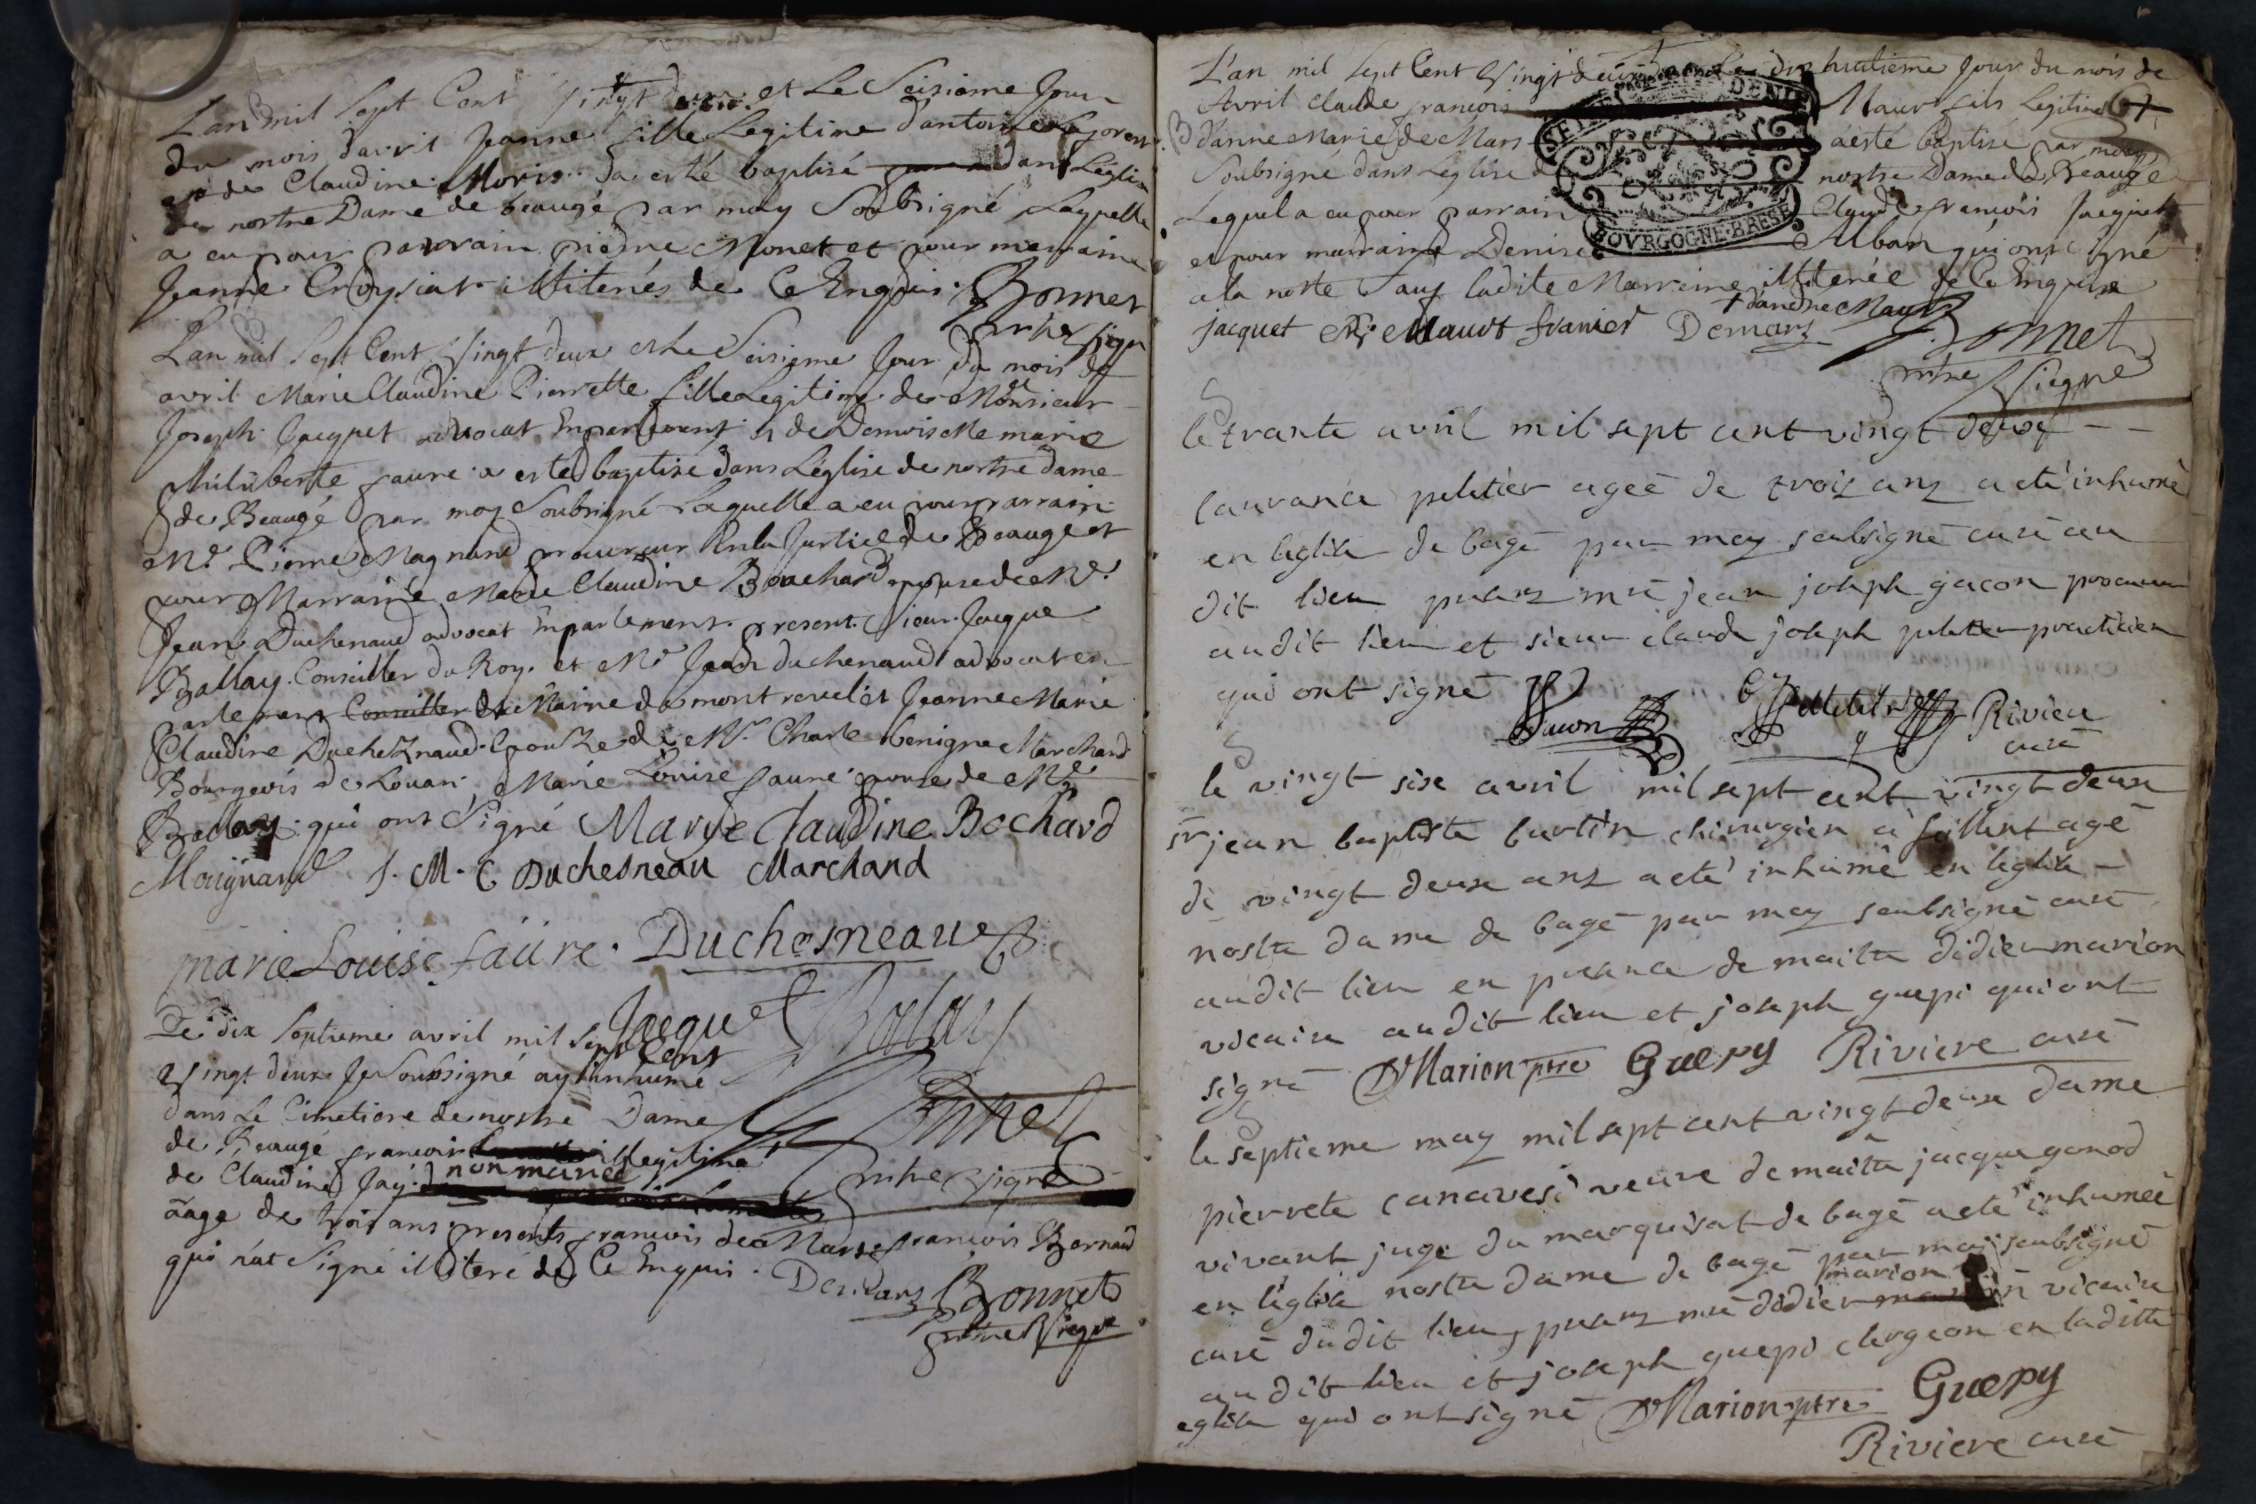 L'an mil sept Cent vingt deux et Le Seisieme Jour
du mois d'avril Jeanne fille Legitime d'antoine
et de Claudine Moris a esté baptisé dans L'Eglise
de nostre Dame de beaugé par moy Soubsigné Laquelle
a eu pour parrain pierre Monet et pour marraine
Jeanne Croysiat illiterés de Ce Enquis. Bonnet
prbre vicaire
L'an mil Sept Cent vingt deux et Le Seisieme Jour du mois de
avril Marie Claudine Pierrette fille Legitime de Monsieur
Joseph Jacquet advocat En parlement et de Demoiselle marie
philiberte faure a esté baptisé dans L'église de nostre dame
de Beaugé par moy Soubsigné Laquelle a eu pour parrain
Mr. Pierre Magnand procureur En la Justice de Beaugé et
pour Marraine Marie Claudine Bouchard epouse de Mr.
Jean Duchenaud advocat En parlement. present Sieur Jacque
Ballay Conseiller du Roy et Mr Jean duchenaud advocat en
parlement Maire de mont revel et Jeanne Marie
Claudine Duchesnaud Epouse de Mr. Charle benigne Marchand
Bourgeois de Louan Marie Louise faure epouse de Mr
Ballay qui ont Signé Marye Claudine Bochard
Maignand J. M. C Duchesneau Marchand
marie Louise faüre Duchesneau
Jacquet Balay
Le dix Septieme avril mil Sept Cent
vingt deux Je Soubsigné ay Inhumé
dans Le Cimetiere de nostre Dame Bonnet
de Beaugé francois illegitime
de Claudine Jay non mariée prbre vicaire
aage de trois ans presents francois de Mars francois Bernard
qui n'at Signé illiteré de Ce Enquis. Demars Bonnet
prbre vicaire
L'an mil Sept Cent vingt deux Le dix huitieme Jour du mois de
Avril Claude francois Maur fils Legitime 67
d'anne Marie de Mars a esté baptise par moy
Soubsigné dans L'eglise nostre Dame de Beaugé
SEIZE DENI
BOVRGOGNE·BRESE
Lequel a eu pour parrain Claude francois Jacquet
et pour marraine Denise Alban qui ont signé
a la notte Sauf ladite Marraine illiterée de Ce Enquise
+ d'andre Maur
jacquet Demars Bonnet
prbre vicaire
le trante avril mil sept cent vingt deux - -
laurance peletier ageé de trois ans a eté inhumé
en leglise de bagé par moy soubsigné curé au
dit lieu presens mre jean joseph gacon procureur
audit lieu et sieur claude joseph peletier practicien
qui ont signé
Gacon Riviere
curé
le vingt sise avril mil sept cent vingt deux
sr jean baptiste burtin chirurgien a agé
de vingt deux ans a eté inhumé en leglise -
nostre dame de bagé par moy soubsigné curé
audit lieu en presence de maitre didier marion
vicaire audit lieu et joseph guepi qui ont
signé DMarion ptre Guepy Riviere curé
le septieme may mil sept cent vingt deux dame
pierrete canavesi veuve de maitre jacque gonod
vivant juge du marquisat de bagé a eté inhumeé
en leglise nostre dame de bagé par moy soubsigné
marion
curé dudit lieu, presens mre didier vicaire
audit lieu et joseph guepi clergeon en laditte
eglise qui ont signé DMarion ptre Guepy
Riviere curé